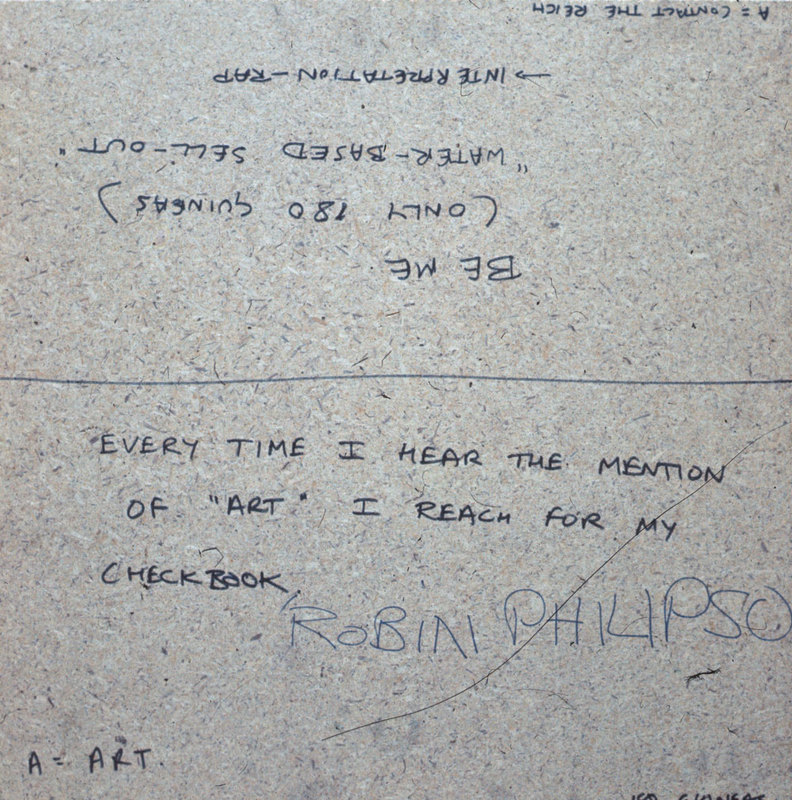 BE ME
(ONLY 180 GUINEAS)
"WATER-BASED SELL-OUT"
→ INTERPRETATION-RAP
A = CONTACT THE REICH
EVERY TIME I HEAR THE MENTION
OF "ART" I REACH FOR MY
CHECKBOOK.
ROBIN PHILIPSO
A = ART.